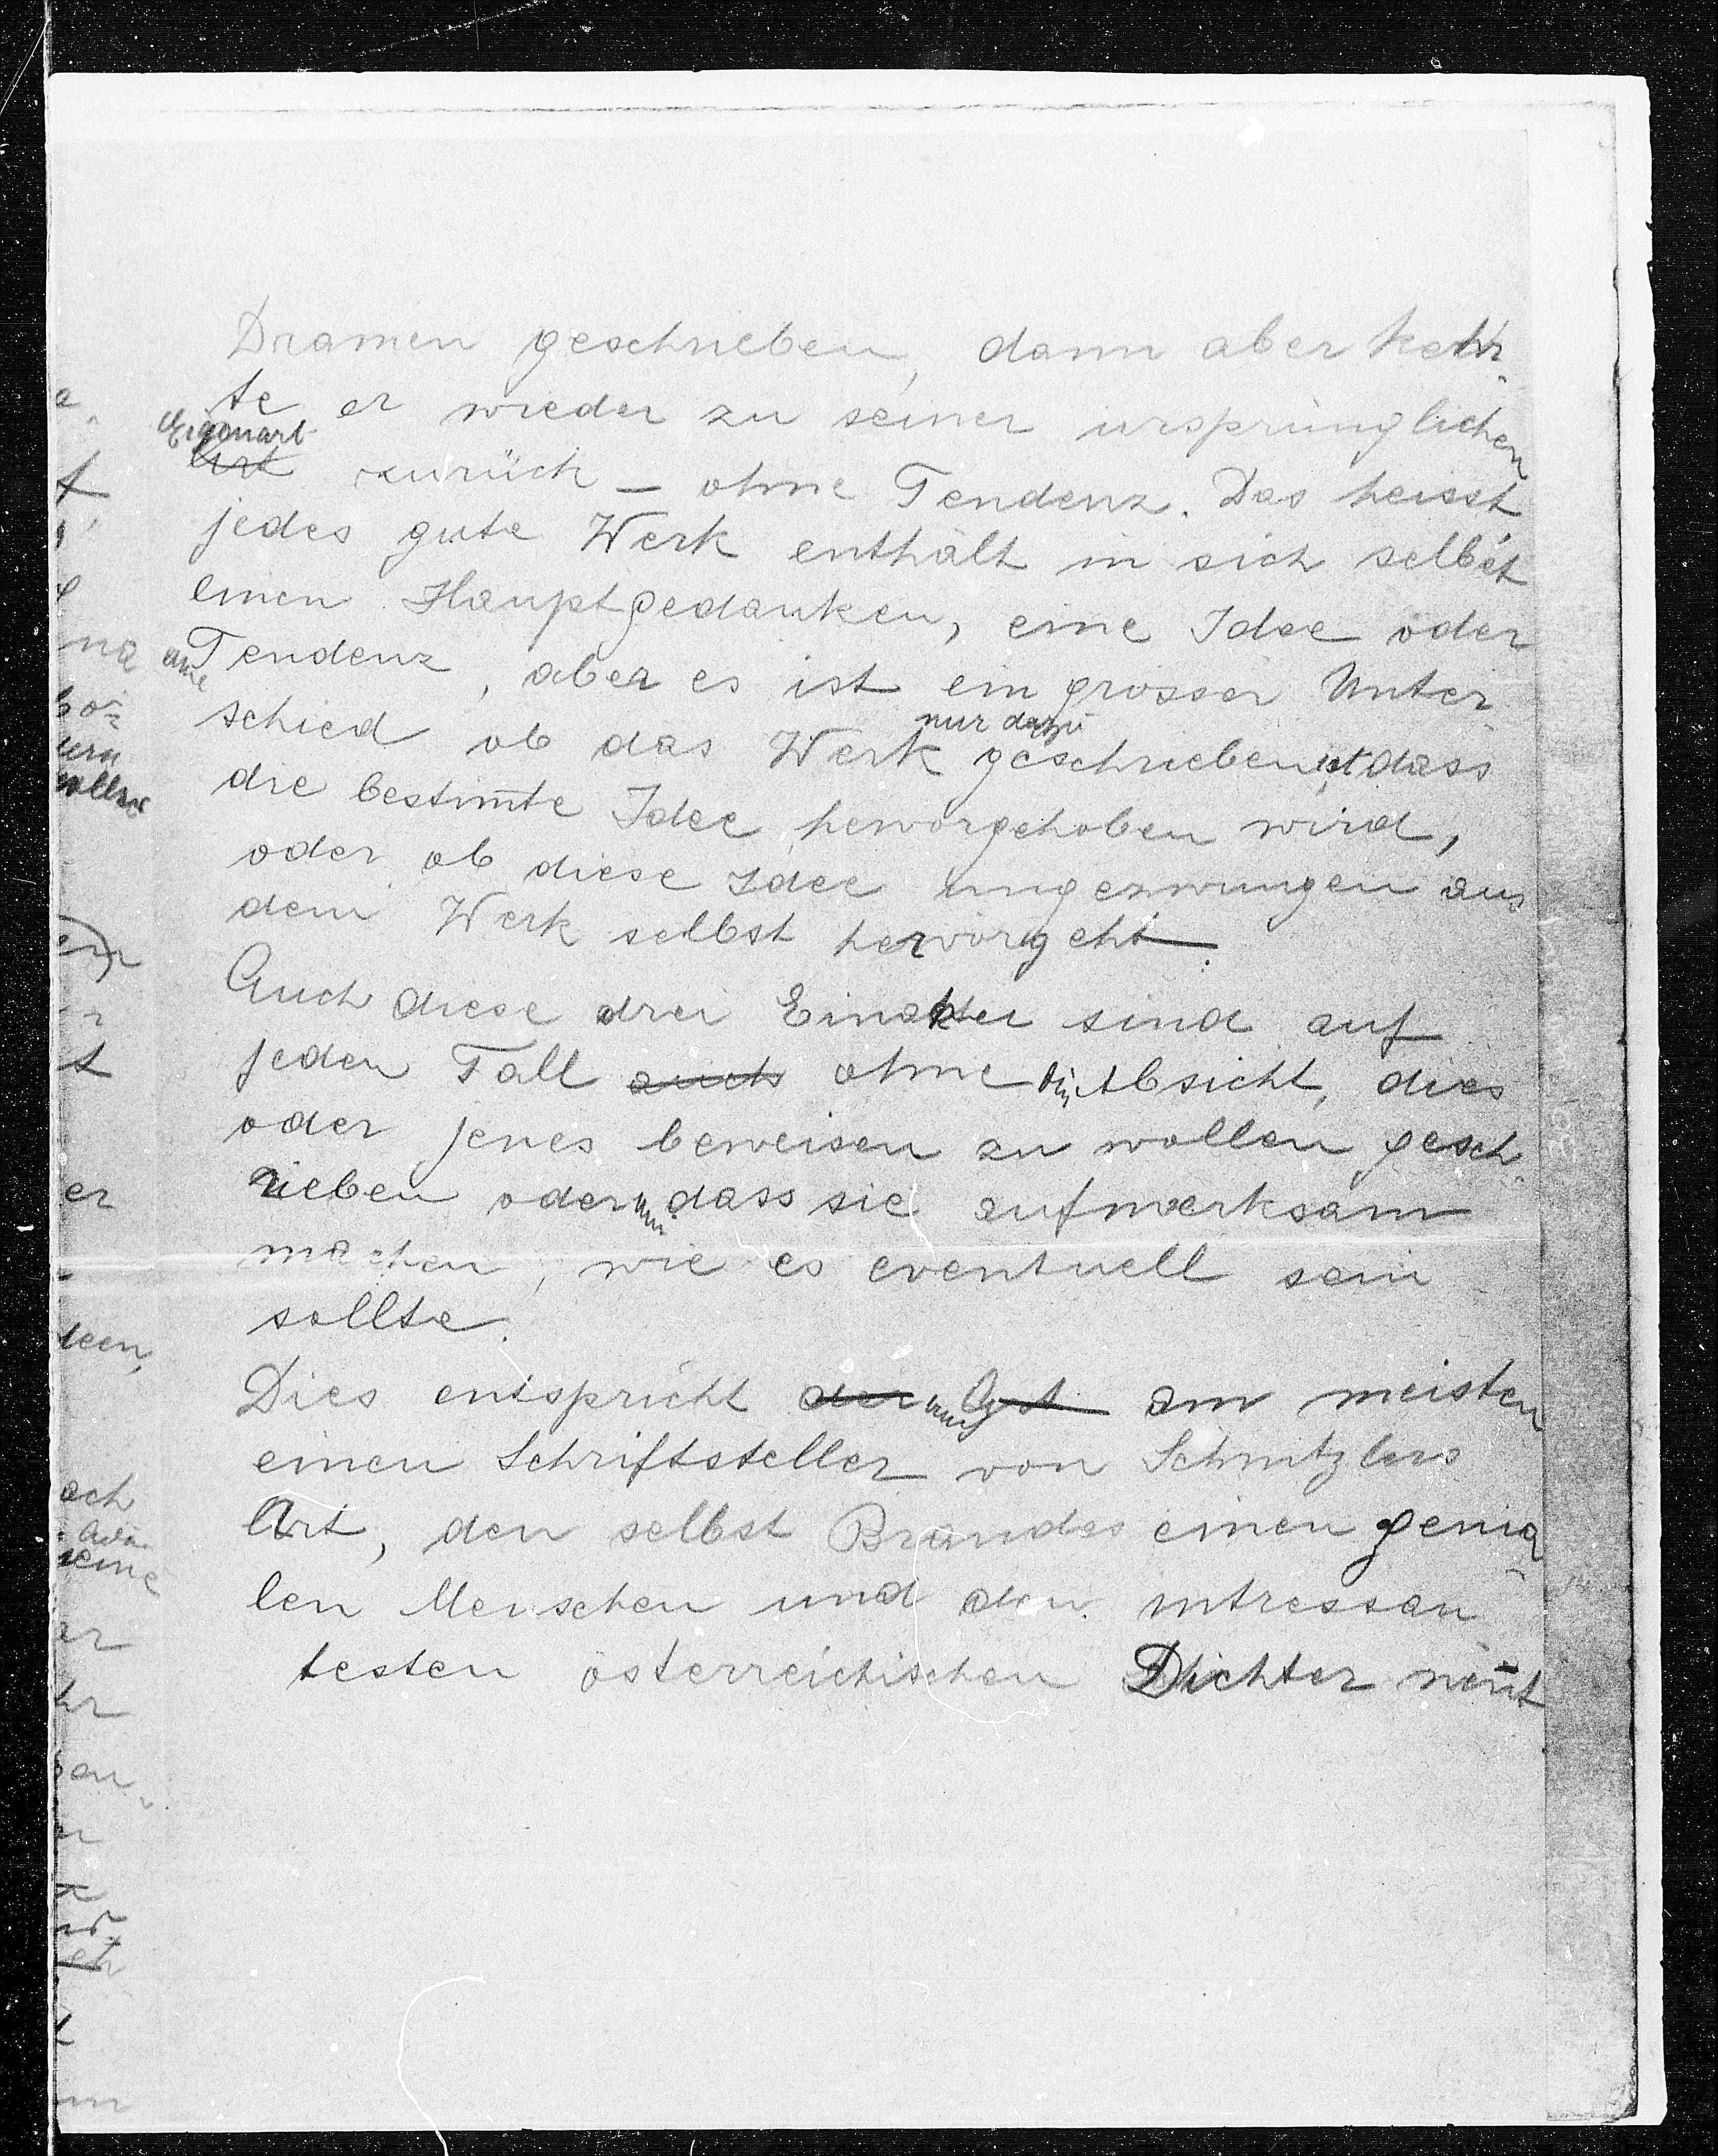 Dramen geschrieben, dann aber kehr-
te er wieder zu seiner ursprünglichen
Eigenart
Art zurück – ohne Tendenz. Das heisst
jedes gute Werk enthält in sich selbst
einen Hauptgedanken, eine Idee oder
eine Tendenz, aber es ist ein grosser Unter-
schied ob das Werk nur dazu geschrieben ist dass
die bestim̄te Idee hervorgehoben wird,
oder ob diese Idee ungezwungen aus
dem Werk selbst hervorgeht.
Auch diese drei Einakter sind auf
jeden Fall auch ohne die Absicht, dies
oder jenes beweisen zu wollen gesch-
rieben oder dass sie aufmerksam
machen, wie es eventuell sein
sollte.
Dies entspricht der Art am meisten
einen Schriftsteller von Schnitzlers
Art, den selbst Brandes einen genia-
len Menschen und den intressan
testen österreichischen Dichter nen̄t